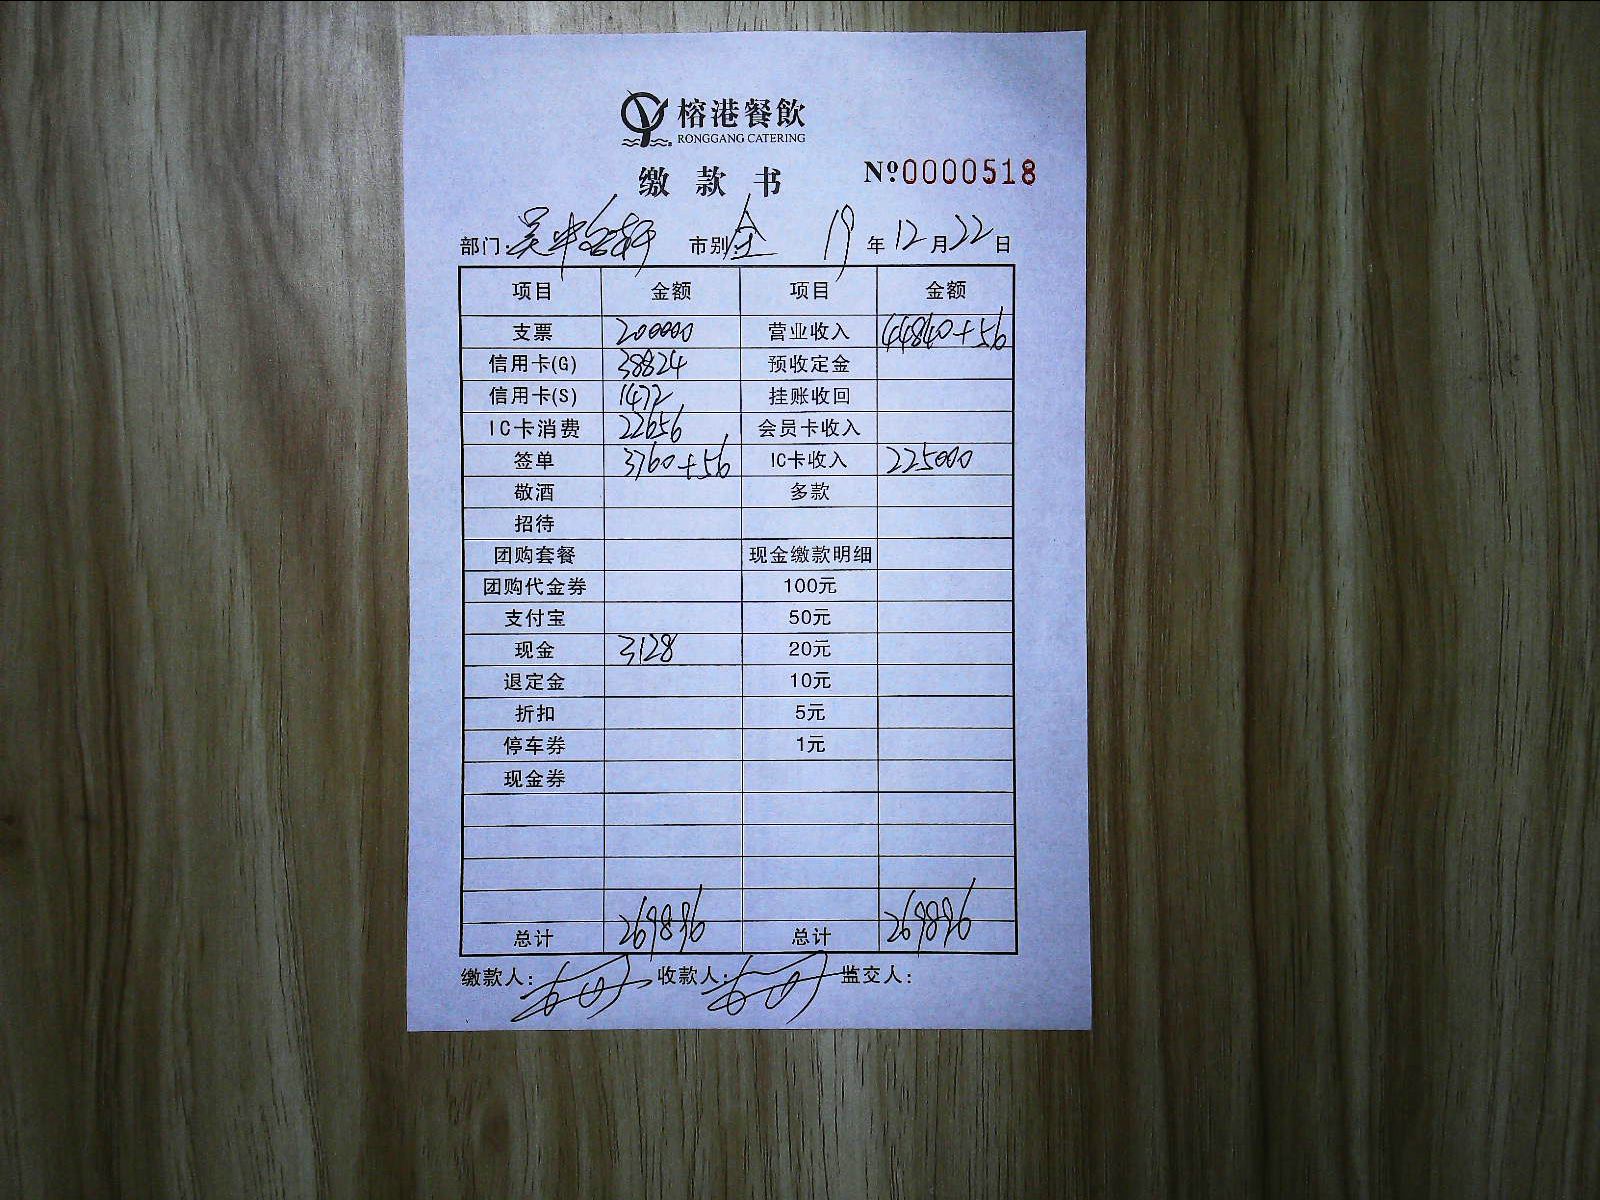 榕港餐飲
RONGGANG CATERING
缴款书 Nº0000518
部门: 吴中 市别 全 19年12月22日
项目 金额 项目 金额
支票 200000 营业收入 44840+56
信用卡(G) 38824 预收定金
信用卡(S) 1472 挂账收回
IC卡消费 22656 会员卡收入
签单 3760+56 IC卡收入 225000
敬酒 多款
招待
团购套餐 现金缴款明细
团购代金券 100元
支付宝 50元
现金 3128 20元
退定金 10元
折扣 5元
停车券 1元
现金券
总计 269896 总计 269896
缴款人: 收款人: 监交人: